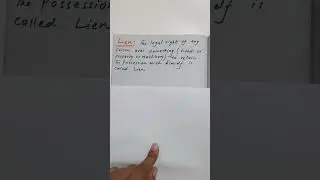 the Possession
called Lien.
Lien: The legal right of any
person over something (Goods or
property or machinery) to retain
the possession with himself is
called Lien